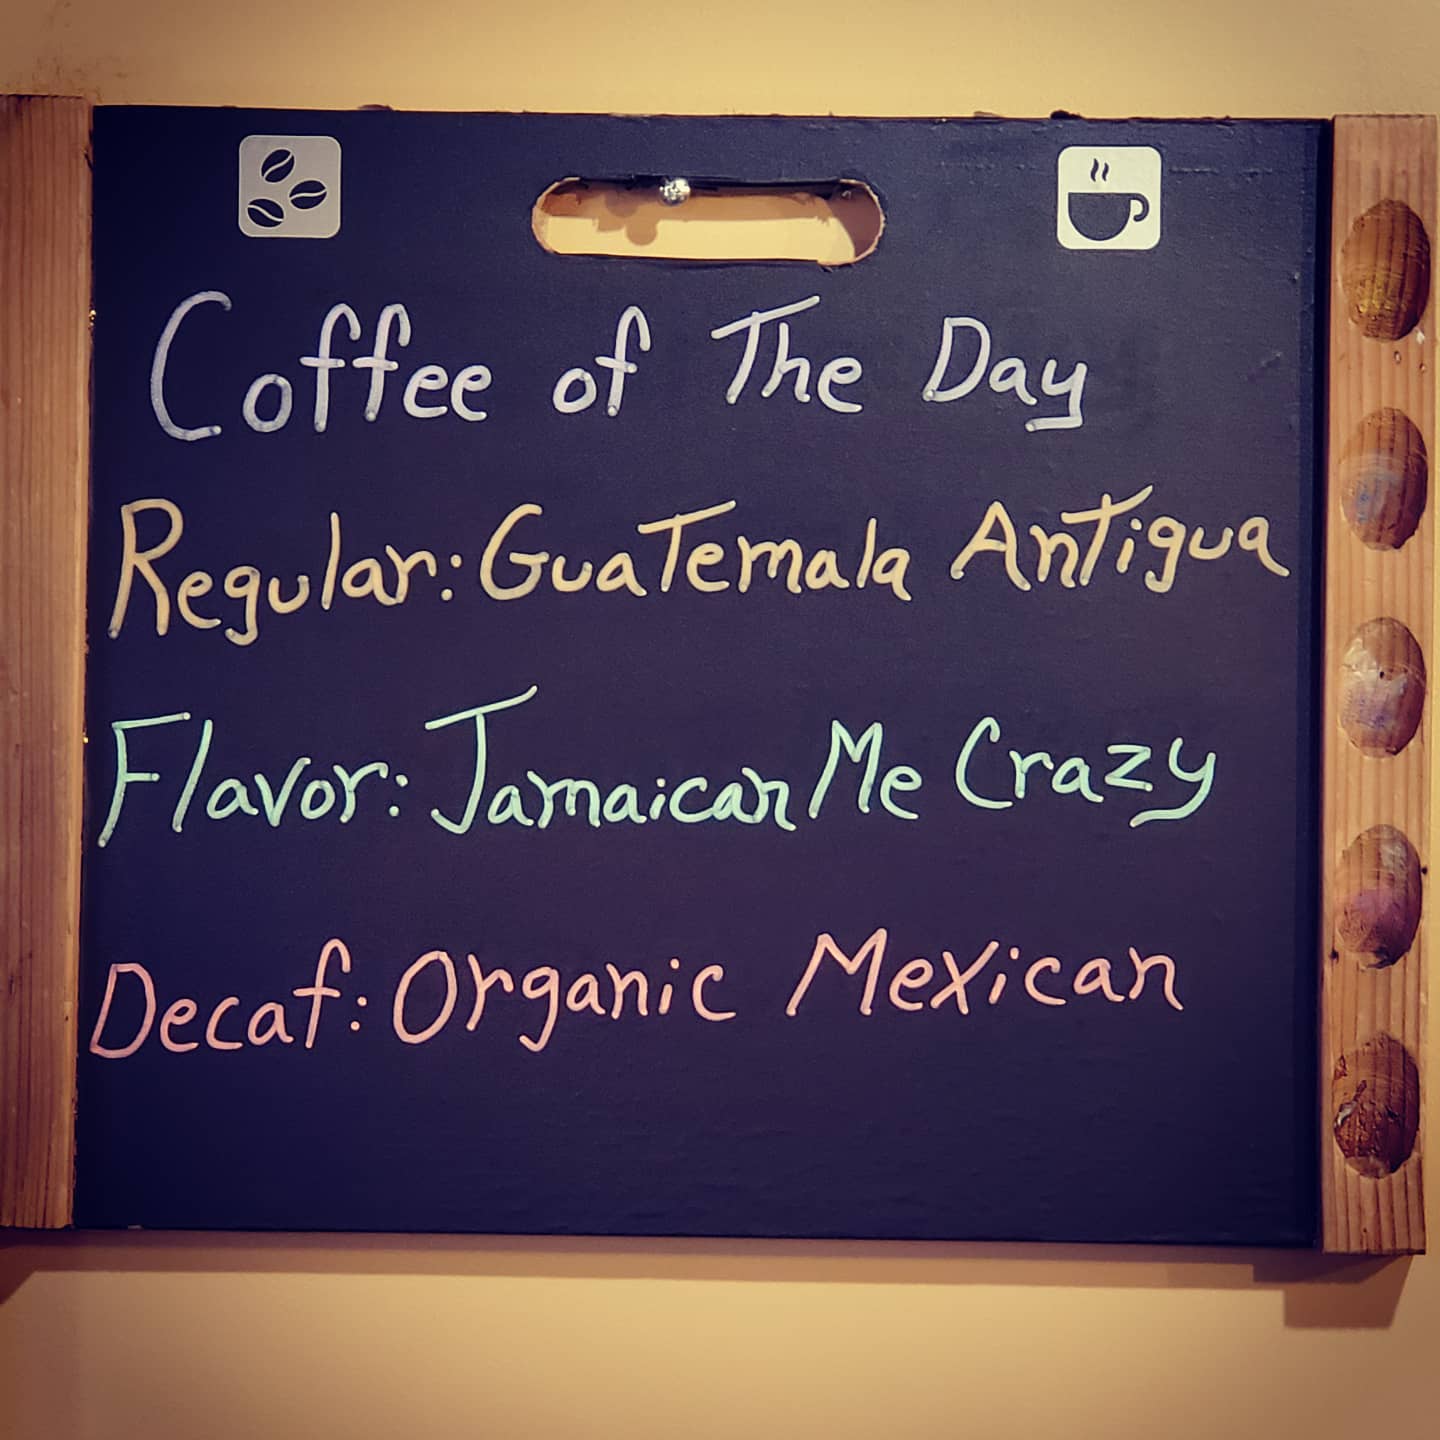 Coffee of The Day
Regular: Guatemala Antigua
Flavor: Jamaican Me Crazy
Decaf: Organic Mexican